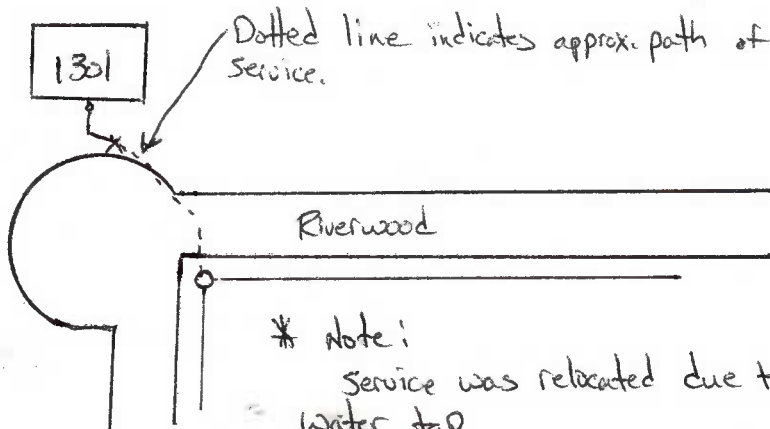 Dotted line indicates approx. path of
service.
1301
Riverwood
* Note:
Service was relocated due t
Water tap